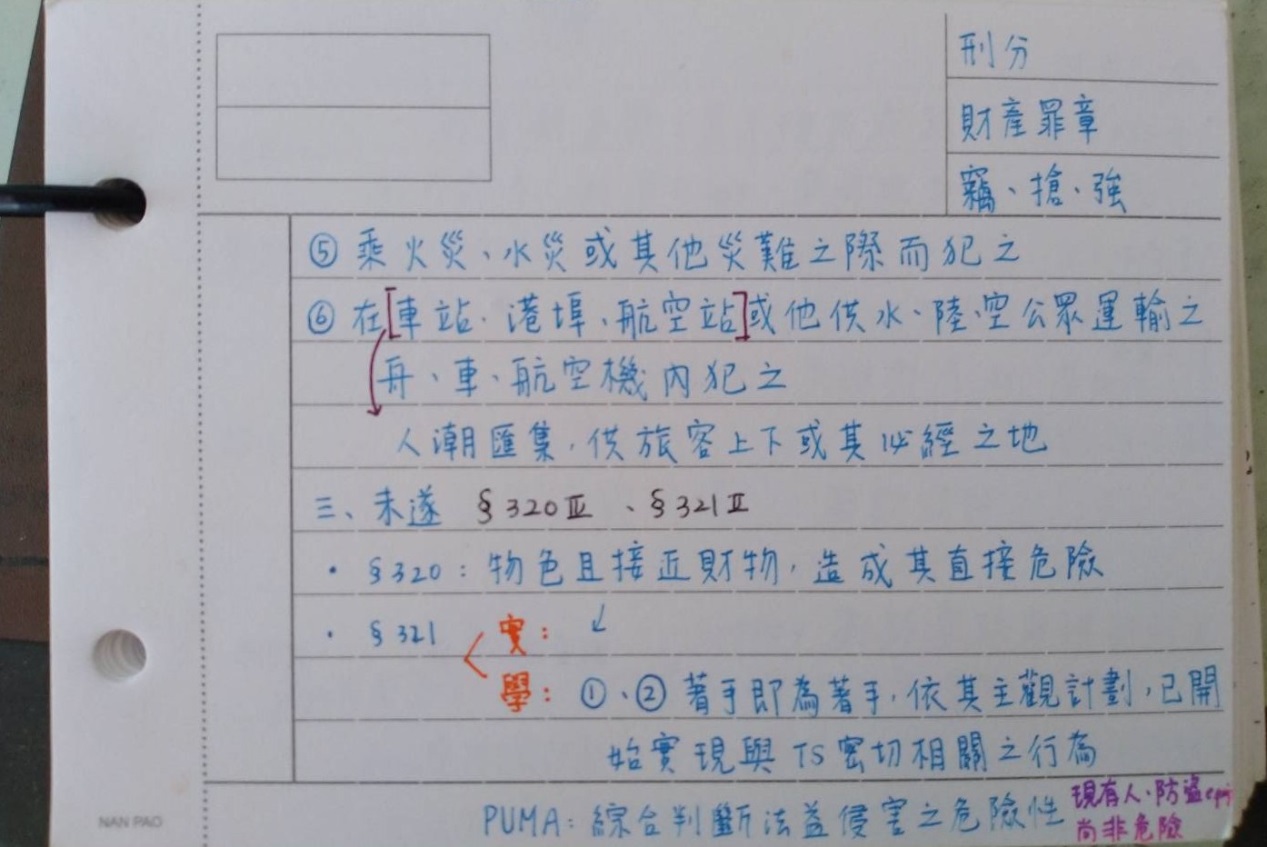 刑分
財產罪章
竊、搶、強
⑤ 乘火災、水災或其他災難之際而犯之
⑥ 在[車站、港埠、航空站]或他供水、陸、空公眾運輸之
舟、車、航空機內犯之
人潮匯集,供旅客上下或其必經之地
三、未遂 §320Ⅲ、§321Ⅱ
· §320：物色且接近財物,造成其直接危險
· §321 < 實： ↙
學：①、②著手即為著手,依其主觀計劃,已開
始實現與TS密切相關之行為
PUMA：綜合判斷法益侵害之危險性
現有人、防盜
尚非危險
NAN PAO